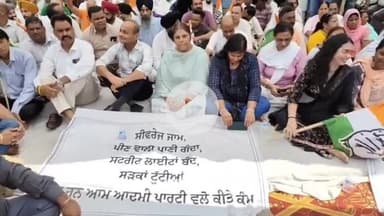 ਸੀਵਰੇਜ ਜਾਮ,
ਪੀਣ ਵਾਲਾ ਪਾਣੀ ਗੰਦਾ,
ਸਟਰੀਟ ਲਾਈਟਾਂ ਬੰਦ,
ਸੜਕਾਂ ਟੁੱਟੀਆਂ
ਆਮ ਆਦਮੀ ਪਾਰਟੀ ਵਲੋਂ ਕੀਤੇ ਕੰਮ